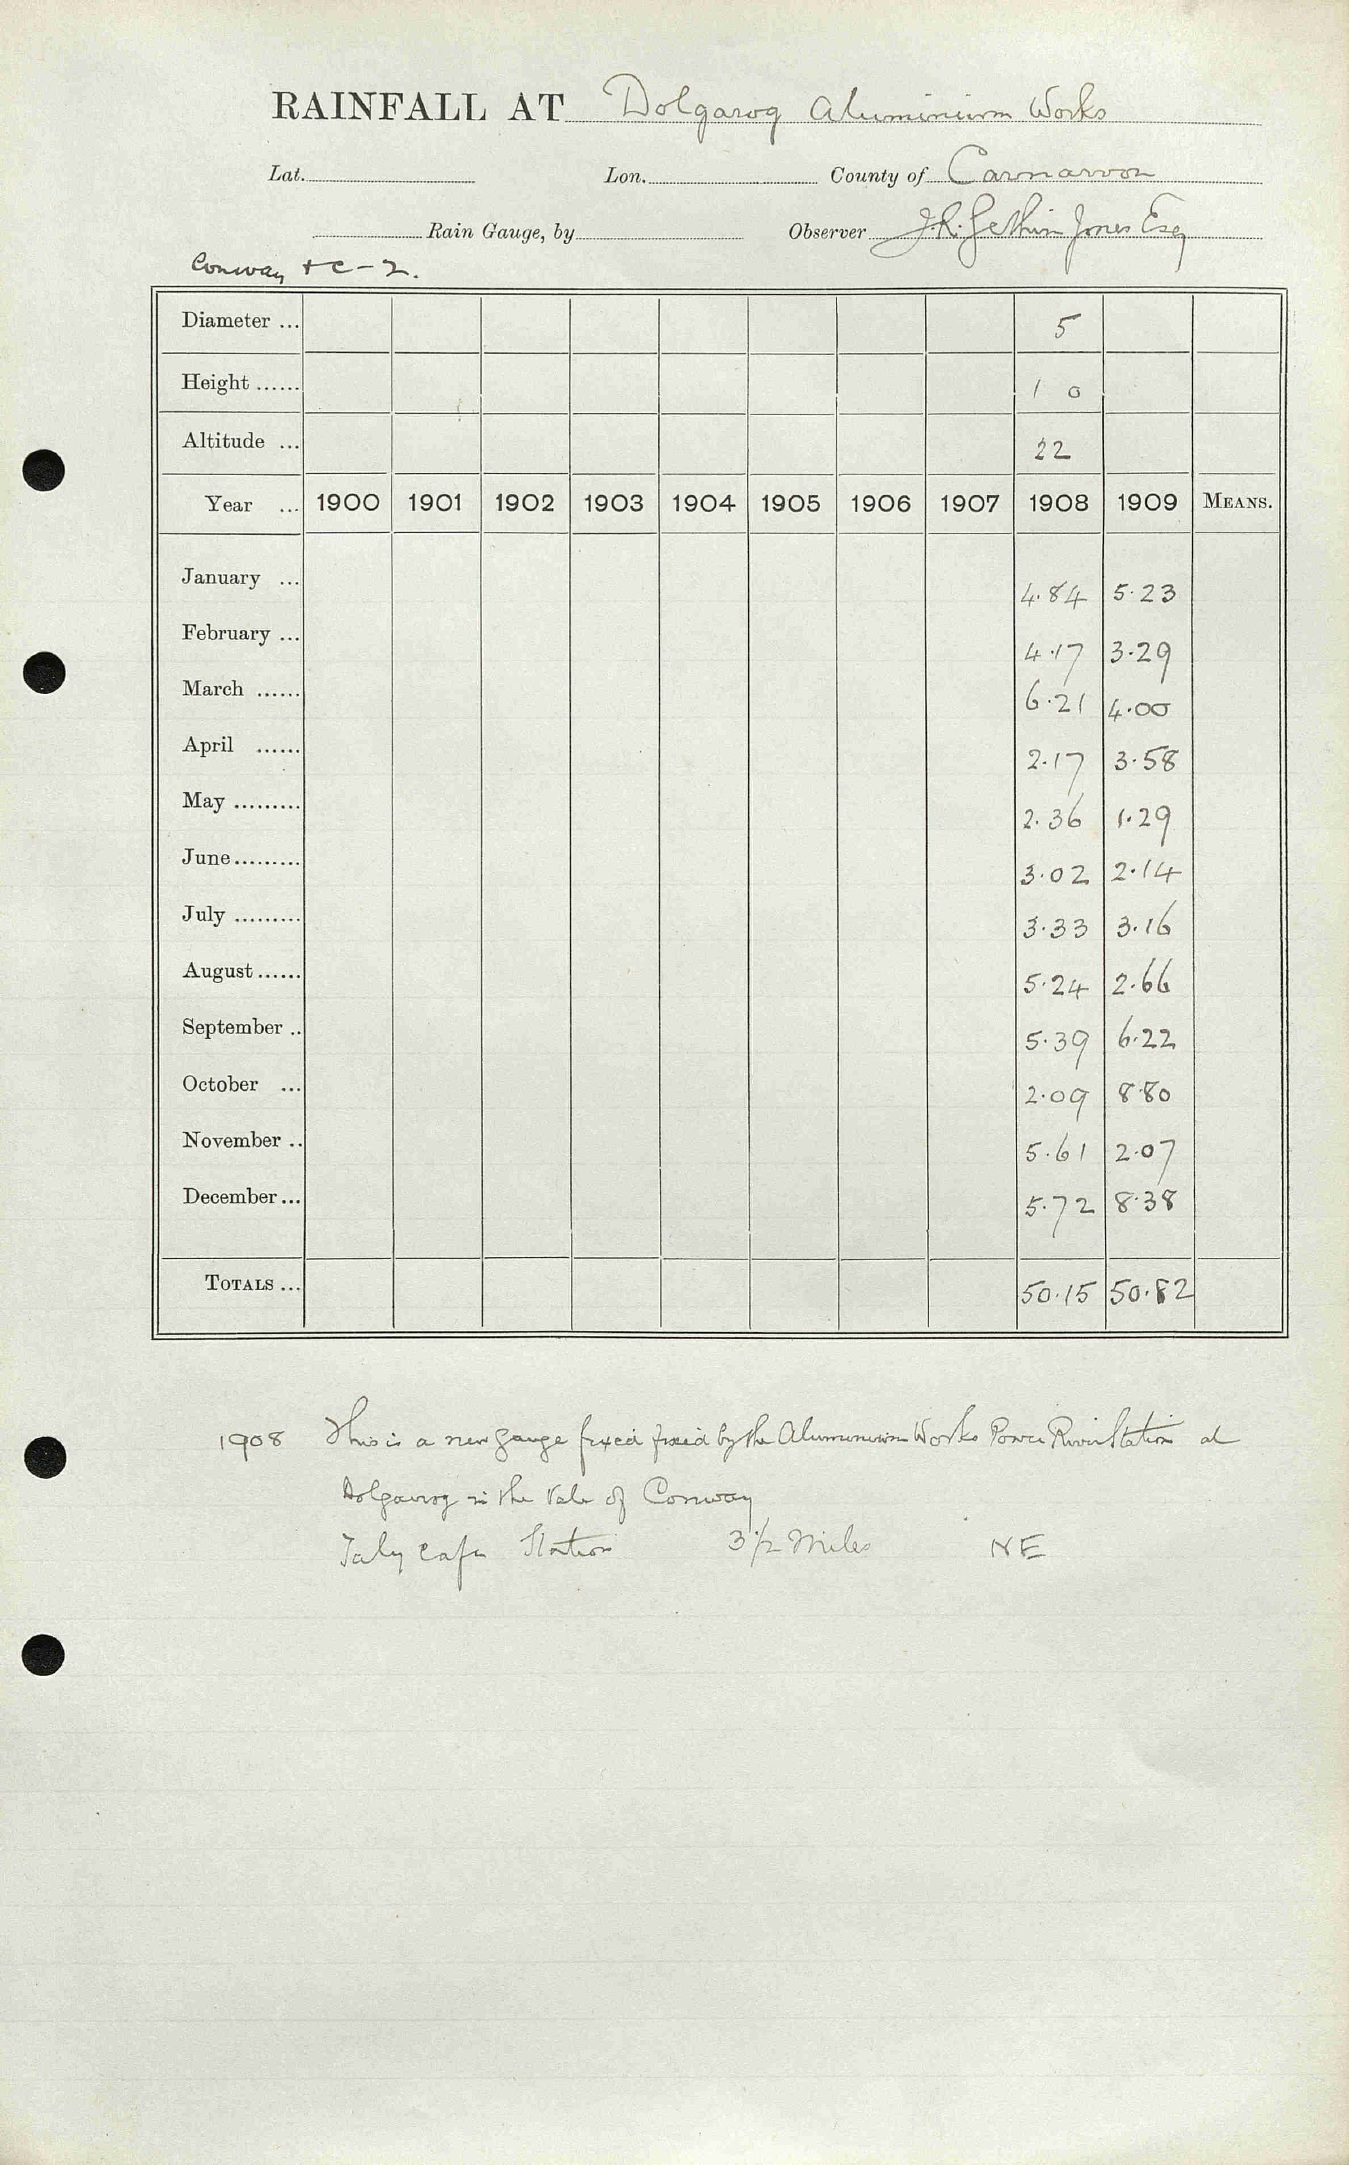 RAINFALL AT Dolgarog Aluminium Works
Lat. Lon. County of Carnarvon
Rain Gauge, by Observer J.R. Gethin Jones Esq
Conway + C-2.
Diameter ... 5
Height ...... 1 0
Altitude ... 22
Year ... 1900 1901 1902 1903 1904 1905 1906 1907 1908 1909 MEANS.
January ... 4.84 5.23
February ... 4.17 3.29
March ...... 6.21 4.00
April ...... 2.17 3.58
May ......... 2.36 1.29
June ......... 3.02 2.14
July ......... 3.33 3.16
August ...... 5.24 2.66
September .. 5.39 6.22
October ... 2.09 8.80
November .. 5.61 2.07
December ... 5.72 8.38
TOTALS ... 50.15 50.82
1908 This is a new gauge fixed fixed by the Aluminium Works Power Station at
Dolgarrog in the Vale of Conway
Taly Cafn Station 3 1/2 Miles NE